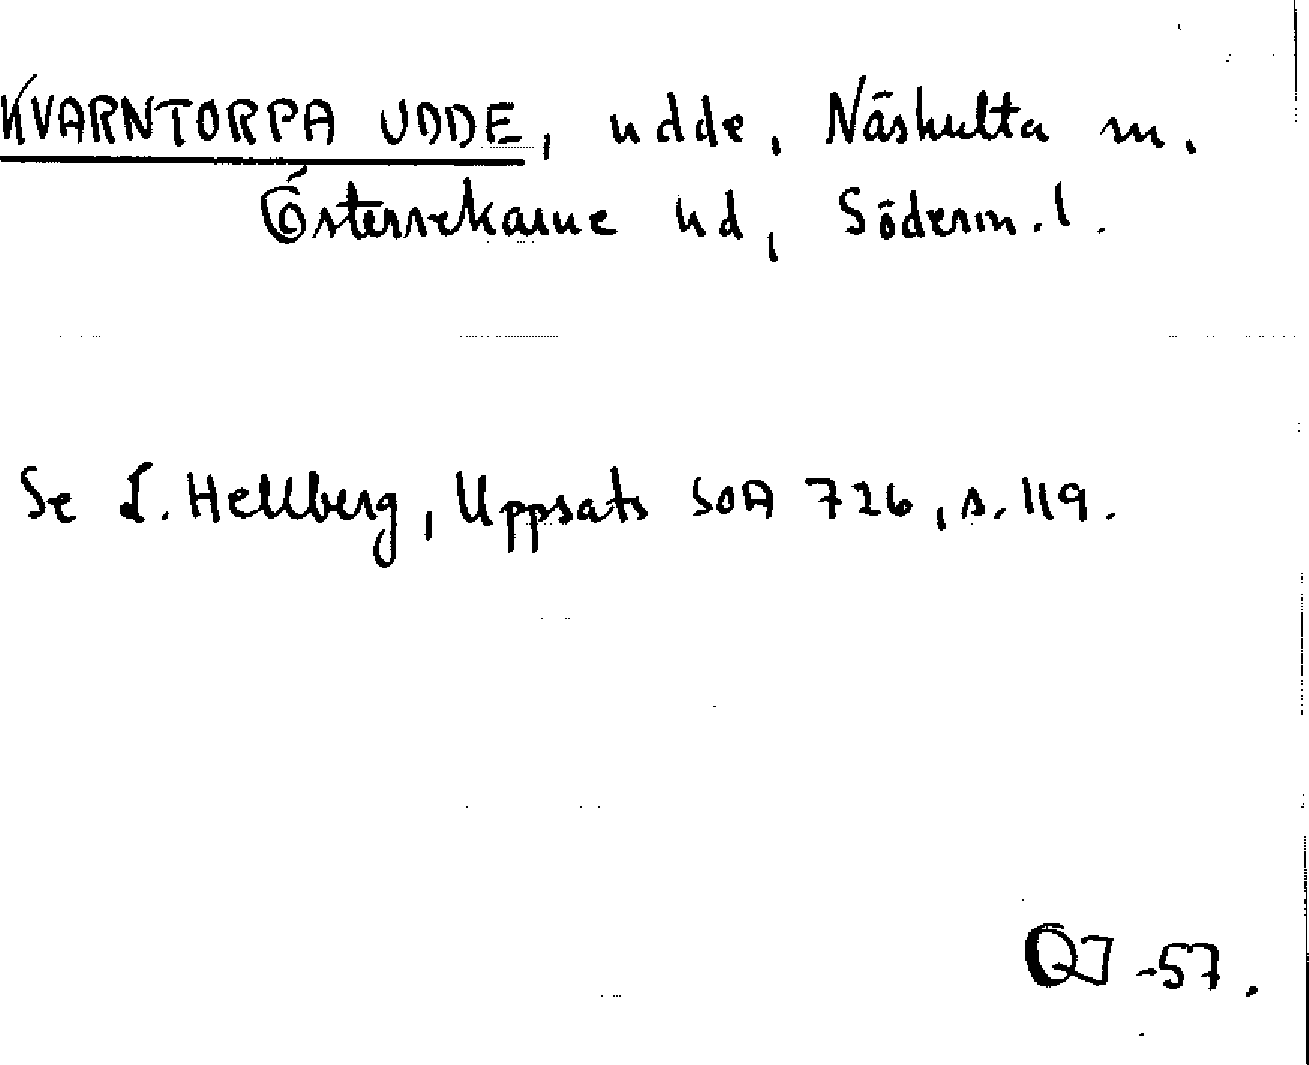 KVARNTORPA UDDE, udde, Näshulta sn.
Österrekarne hd, Söderm.l.
Se L. Hellberg, Uppsats SOA 726, s. 119.
-57.